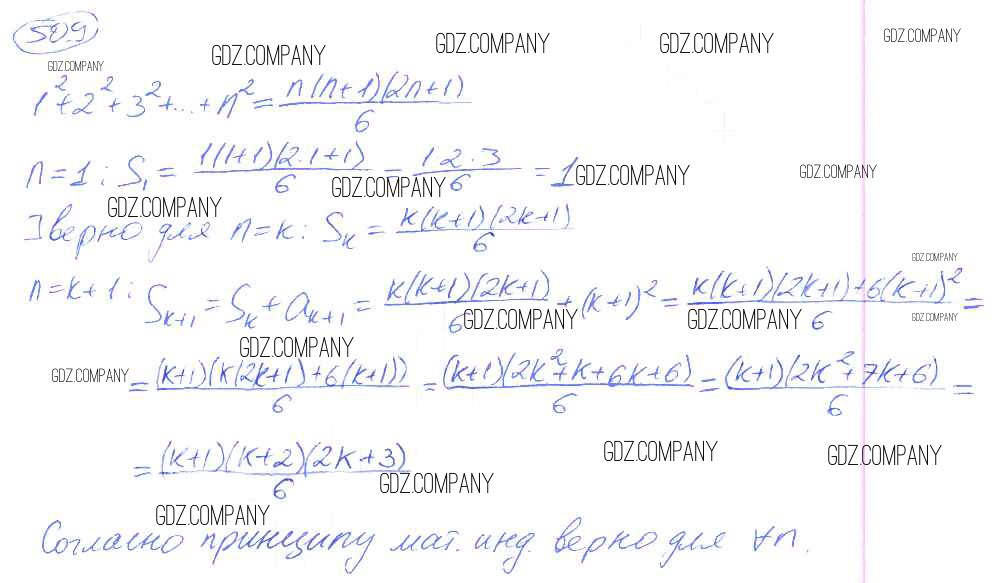 509
GDZ.COMPANY GDZ.COMPANY GDZ.COMPANY GDZ.COMPANY GDZ.COMPANY
1²+2²+3²+...+n² = n(n+1)(2n+1)/6
n=1: S₁ = 1(1+1)(2·1+1)/6 = 1·2·3/6 = 1
GDZ.COMPANY GDZ.COMPANY GDZ.COMPANY GDZ.COMPANY
] верно для n=k: Sₖ = k(k+1)(2k+1)/6
GDZ.COMPANY
n=k+1: Sₖ₊₁ = Sₖ + aₖ₊₁ = k(k+1)(2k+1)/6 + (k+1)² = k(k+1)(2k+1)+6(k+1)²/6 =
GDZ.COMPANY GDZ.COMPANY GDZ.COMPANY
GDZ.COMPANY GDZ.COMPANY
= (k+1)(k(2k+1)+6(k+1))/6 = (k+1)(2k²+k+6k+6)/6 = (k+1)(2k²+7k+6)/6 =
= (k+1)(k+2)(2k+3)/6
GDZ.COMPANY GDZ.COMPANY GDZ.COMPANY
GDZ.COMPANY
Согласно принципу мат. инд. верно для ∀n.